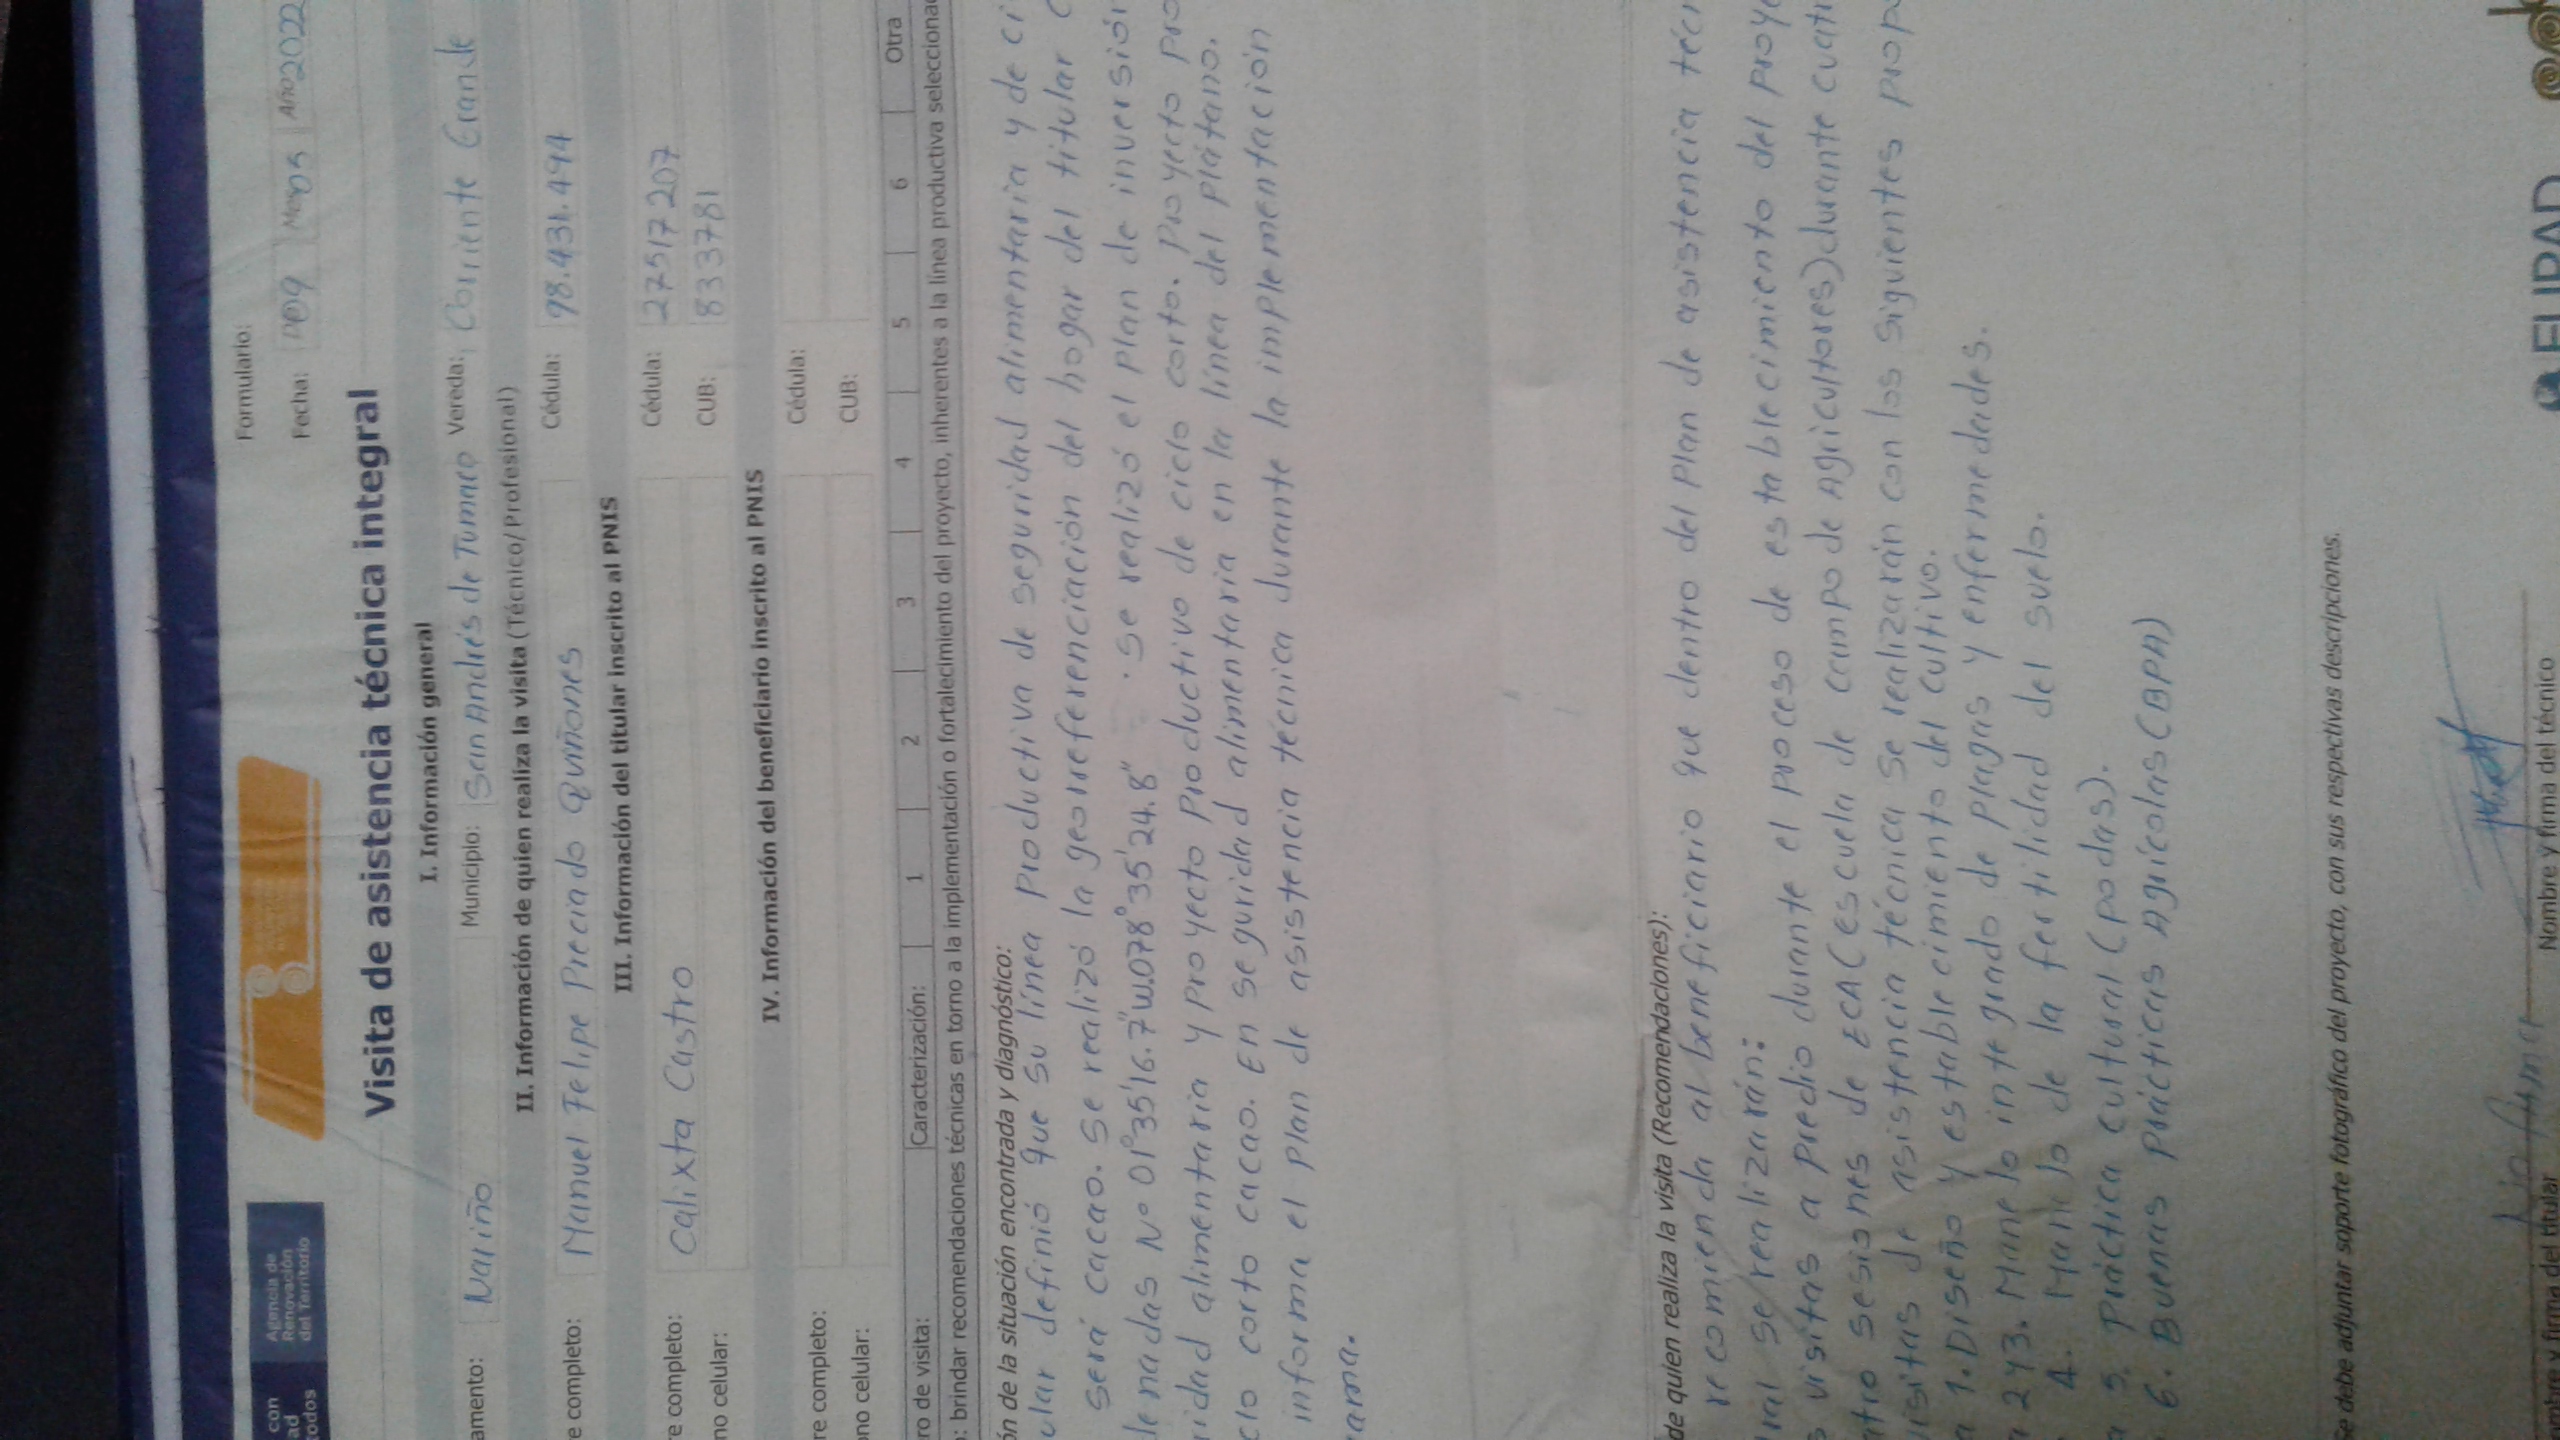 con
ad
todos
Agencia de
Renovación
del Territorio
Formulario:
Fecha: D09 Mes05 Año2022
Visita de asistencia técnica integral
I. Información general
amento: Nariño Municipio: San Andrés de Tumaco Vereda: Corriente Grande
II. Información de quien realiza la visita (Técnico/Profesional)
e completo: Manuel Felipe Preciado Quiñones Cédula: 98.431.494
III. Información del titular inscrito al PNIS
e completo: Calixta Castro Cédula: 27517207
no celular: CUB: 8333781
IV. Información del beneficiario inscrito al PNIS
re completo: Cédula:
ono celular: CUB:
ro de visita: Caracterización: 1 2 3 4 5 6 Otra
: brindar recomendaciones técnicas en torno a la implementación o fortalecimiento del proyecto, inherentes a la línea productiva seleccionad
ón de la situación encontrada y diagnóstico:
ular definió que su línea productiva de seguridad alimentaria y de ci
será cacao. Se realizó la georreferenciación del hogar del titular c
denadas N° 01°35'16.7"W.078°35'24.8" . Se realizó el plan de inversión
ridad alimentaria y proyecto productivo de ciclo corto. Proyecto pro
clo corto cacao. En seguridad alimentaria en la línea del plátano.
informa el plan de asistencia técnica durante la implementación
rama.
de quien realiza la visita (Recomendaciones):
recomienda al beneficiario que dentro del plan de asistencia técn
ral se realizarán:
s visitas a predio durante el proceso de establecimiento del proye
atro sesiones de ECA (escuela de campo de Agricultores) durante cuatr
visitas de asistencia técnica se realizarán con los siguientes prop
a 1. Diseño y establecimiento del cultivo.
a 2 y 3. Manejo integrado de plagas y enfermedades.
4. Manejo de la fertilidad del suelo.
a 5. Práctica cultural (podas).
6. Buenas Prácticas Agrícolas (BPA)
Se debe adjuntar soporte fotográfico del proyecto, con sus respectivas descripciones.
mbre y firma del titular
Nombre y firma del técnico